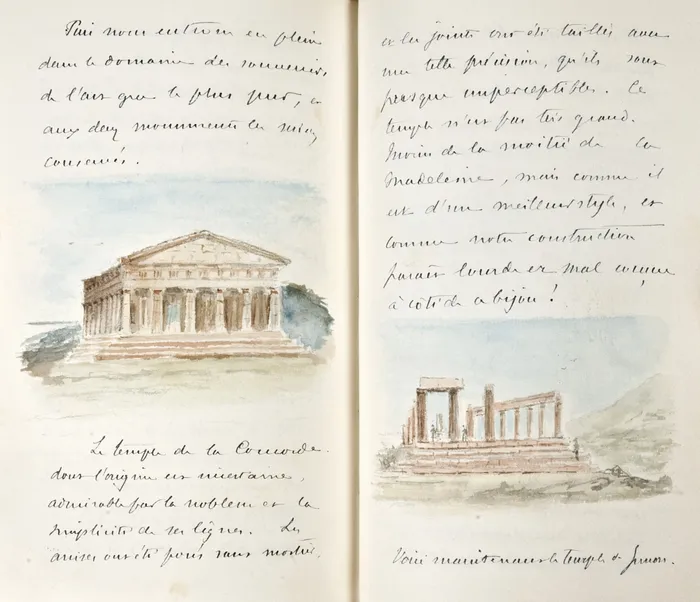 Puis nous entrons en plein
dans le domaine des souvenirs,
de l'art grec le plus pur, et
aux deux monuments les mieux
conservés.
Le temple de la Concorde.
dont l'origine est incertaine,
admirable par la noblesse et la
simplicité de ses lignes. Les
assises ont été posées sans mortier,
et les joints ont été taillés avec
une telle précision, qu'ils sont
presque imperceptibles. Ce
temple n'est pas très grand.
Moins de la moitié de la
Madeleine, mais comme il
est d'un meilleur style, et
comme notre construction
paraît lourde et mal conçue
à côté de ce bijou!
Voici maintenant le temple de Junon.